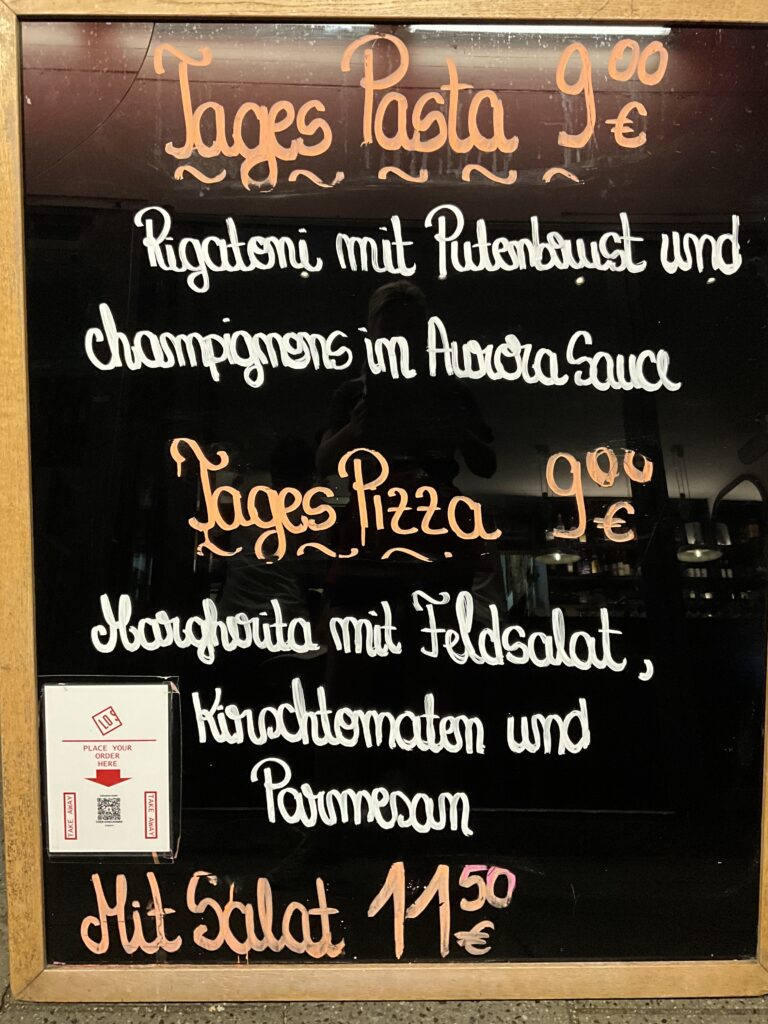 Tages Pasta 9 00 €
Rigatoni mit Putenbrust und
champignons in Aurora Sauce
Tages Pizza 9 00 €
Margherita mit Feldsalat,
Kirschtomaten und
Parmesan
LOS
PLACE YOUR
ORDER
HERE
TAKE AWAY
TAKE AWAY
Mit Salat 11 50 €